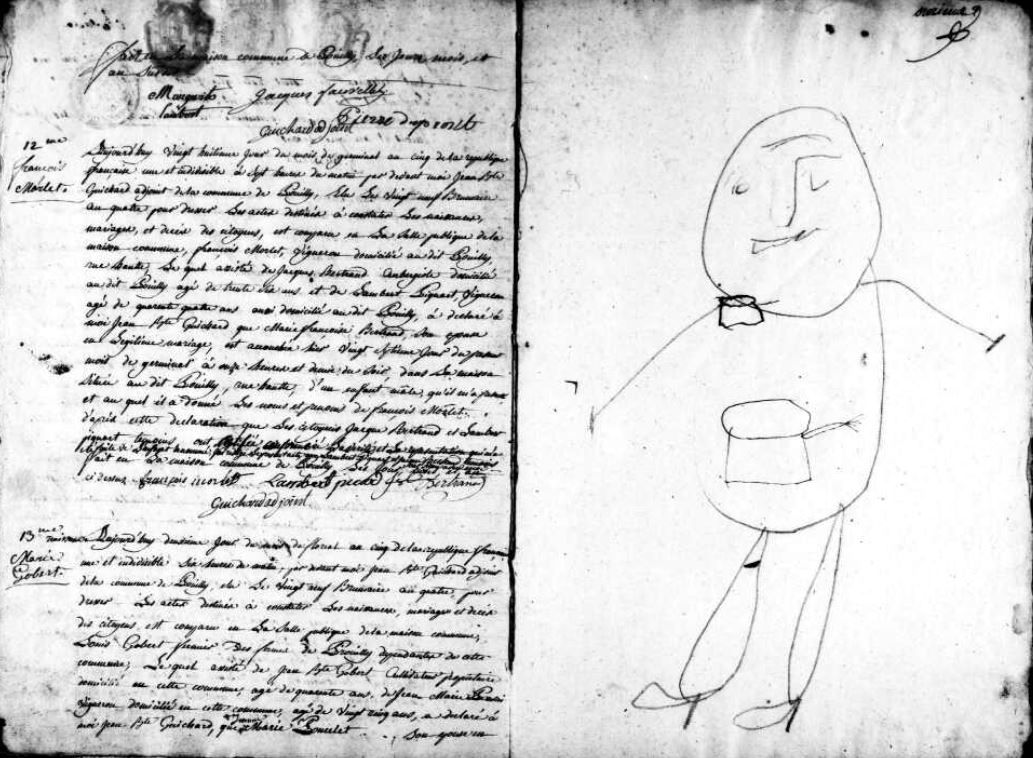 fait en la maison commune de Pouilly, les jour, mois, et
an susdit
Marguerite Jacques fauvellet
lambert Pierre
Guichard adjoint
12 me
françois
Morlet
Aujourd'huy vingt huitieme jour du mois de germinal an cinq de la republique
française une et indivisible à sept heures du matin par devant moi Jean Bte
Guichard adjoint de la commune de Pouilly, élu le vingt neuf Brumaire
an quatre pour dresser les actes destinés à constater les naissances,
mariages, et decès des citoyens, est comparu en la salle publique de la
maison commune, françois Morlet, vigneron domicilié au dit Pouilly
rue haute, le quel assisté de Jacques Bertrand aubergiste domicilié
au dit Pouilly agé de trente ans et de Lambert Piquart, vigneron
agé de quarente quatre ans aussi domicilié au dit Pouilly, à déclaré à
moi Jean Bte Guichard que Marie françoise Bertrand, son epouse
en legitime mariage, est accouchée hier vingt septieme jour du
mois de germinal à onze heures et demie du soir dans sa maison
située au dit Pouilly, rue hautte, d'un enfant male, qu'il m'a
et au quel il a donné les noms et prenom de françois Morlet.
d'après cette declaration que les citoyens Jacque Bertrand et Lambert
piquart temoins ont
fait en la maison commune de Pouilly les jour
ci dessus françois morlet Lambert Bertrand
Guichard adjoint
13 me
Marie
Gobert
Aujourd'huy deuxieme jour du mois de floreal an cinq de la republique française
une et indivisible six heures du matin, par devant moi Jean Bte Guichard adjoint
de la commune de Pouilly, élu le vingt neuf Brumaire an quatre, pour
dresser les actes destinés à constater les naissances, mariages et decès
des citoyens, est comparu en la salle publique de la maison commune,
Louis Gobert fermier des ferme de Prouilly dependante de cette
commune, le quel assisté de Jean Bte Gobert Cultivateur
domicilié en cette commune, agé de quarente ans, de Jean Marie
vigneron domicilié en cette commune, agé de vingt cinq ans, a declaré à
moi Jean Bte Guichard, que Marie Poucelet son epouse en